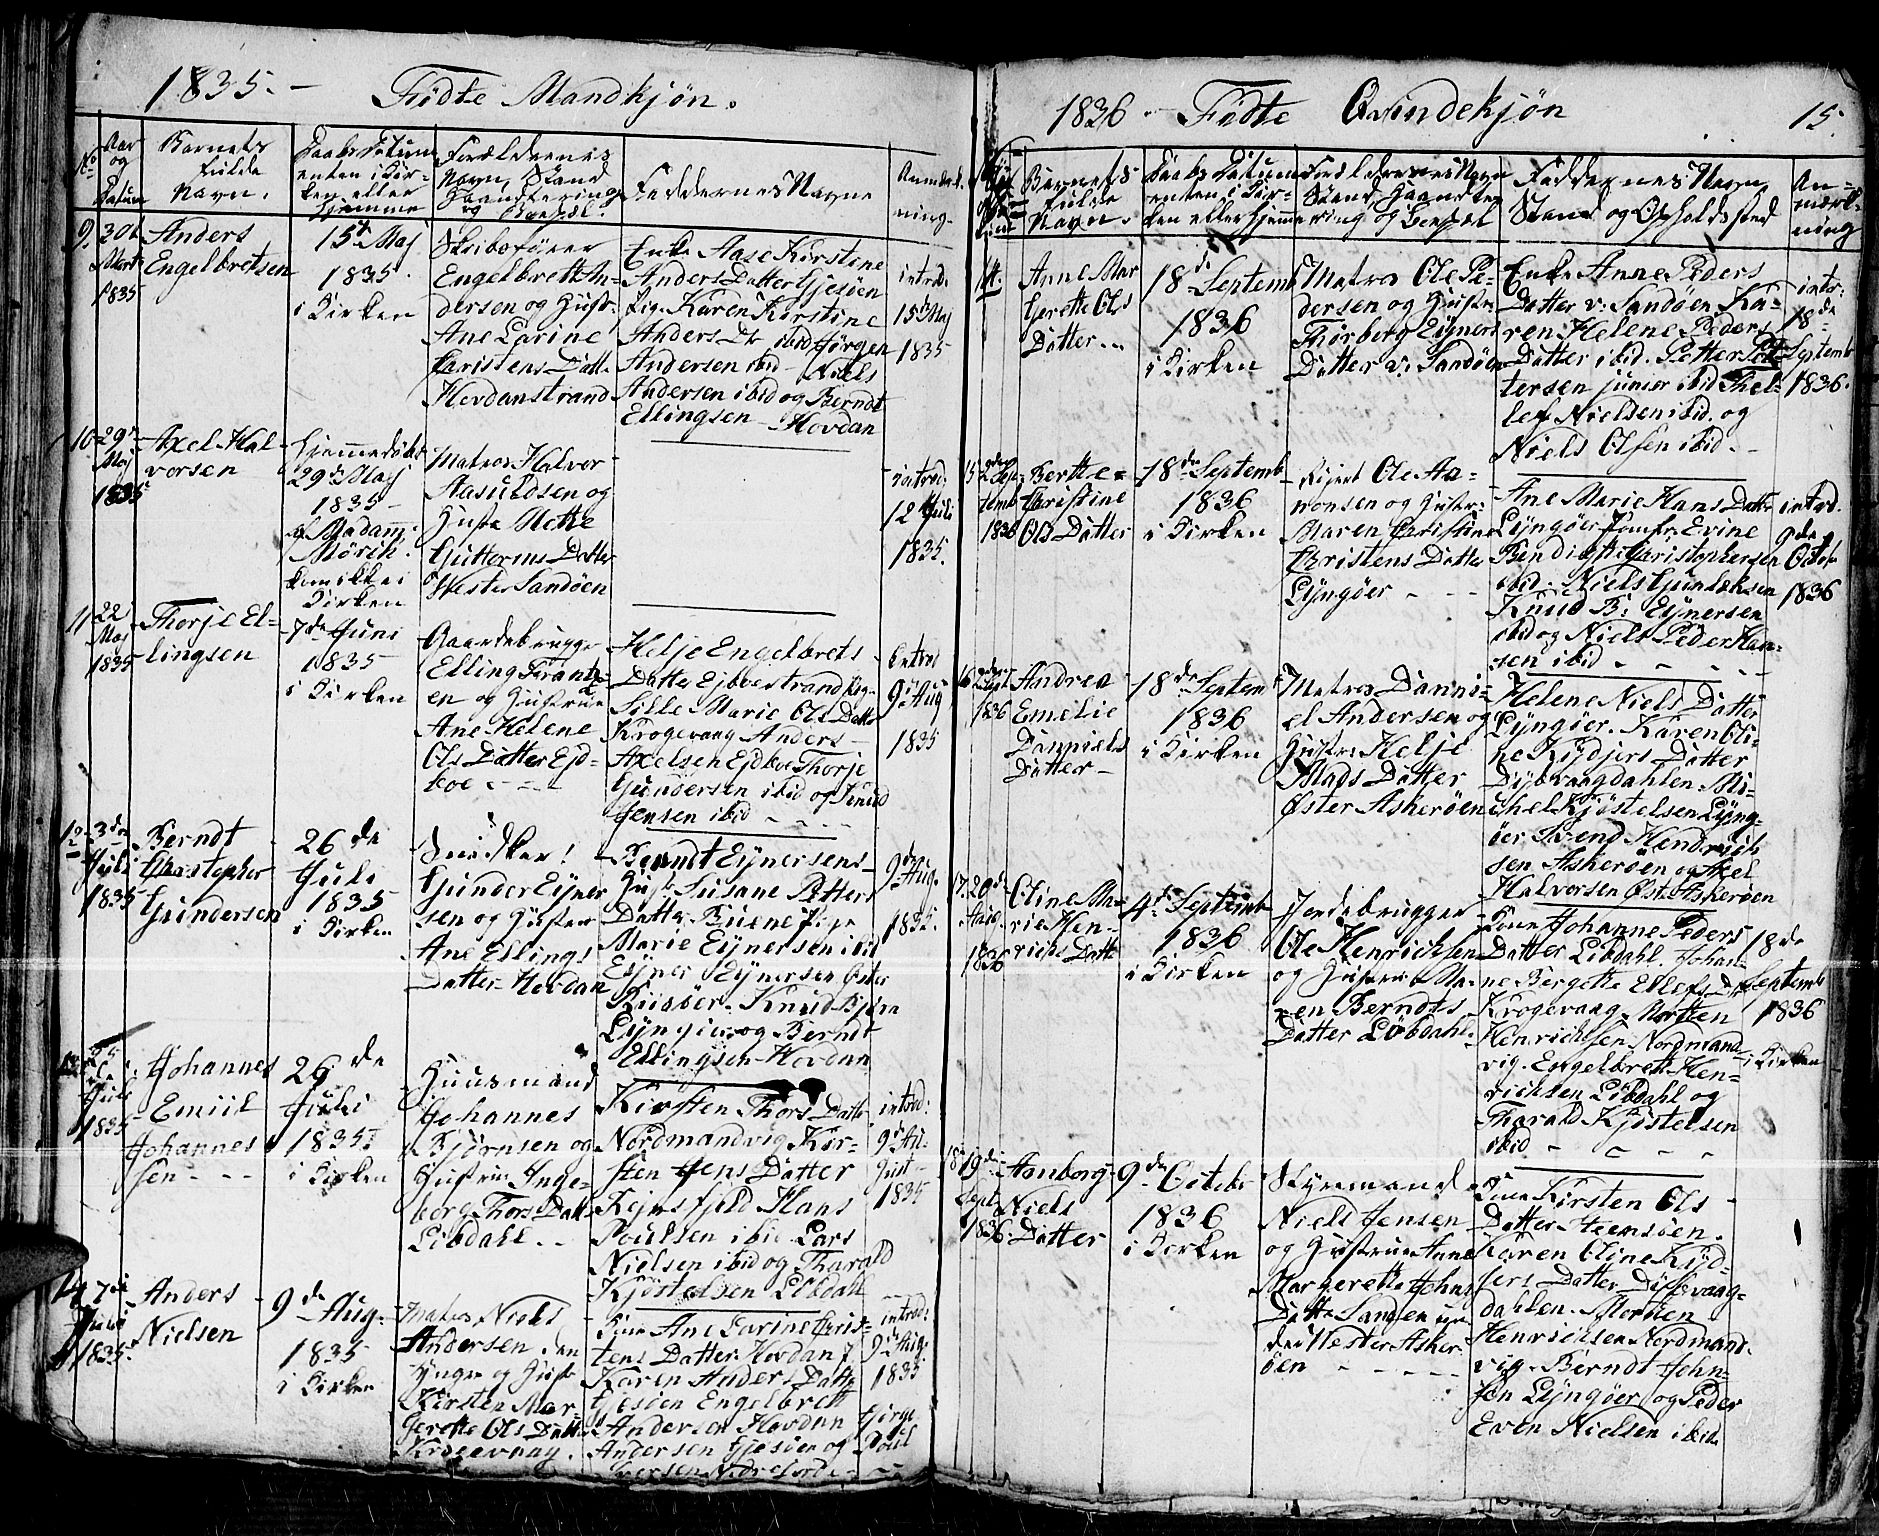 1835. - Fødte Mandkjøn.
No
Aar
og
Datum
Barnets
fulde
Navn.
Daabs Datum
enten i Kir-
ken eller
Hjemme
Forældrenes
Navn, Stand
Haandtering
og Bopæl.
Faddernes Navne
Anmærk-
ning.
9.
20de
Marts
1835
Anders
Engelbretsen
15de Maj
1835.
i Kirken
Skibsfører
Engelbrett An-
dersen og Hust.
Ane Carine
Christens Datt.
Hovdanstrand
Enke Aase Kirstine
Anders Datter Gjesøen
Pig. Karen Kirstine
Anders Dtr ibid Jørgen
Andersen ibid - Niels
Andersen ibid og Berndt
Ellingsen - Hovdan
introd:
15de Maj
1835
10.
29de
Maj
1835
Axel Hal-
vorsen
Hjemmedøbt
29de Maj
1835 -
af Madam
Mörck.
kom ikke i
Kirken
Matros Halvor
Aasuldsen og
Hustr Mette
Guttorms Datter
Wester Sandøen
introd:
12te Juli
1835.
11
22
Maj
1835
Thorje El-
lingsen
7de Juni
1835
i Kirken
Gaardebrugger
Elling Frantz-
en og Hustrue
Ane Helene
Ols Datter Ejd-
boe - - -
Helje Engelbrets
Datter Ejdboestrand Pig.
Sille Marie Ols Datter
Krogevaag Anders
Axelsen Ejdboe Thorje
Gundersen ibid og Knud
Jensen ibid - - - -
Introd
9de Aug
1835
12
3de
Juli
1835
Berndt
Christopher
Gundersen
26de
Juli
1835
i Kirken
Snedker
Gunder Ejner
sen og Hustru
Ane Ellings
Datter Hovdan
Berndt Ejnersens
Hust Susane Petters
Datter Buene Pige
Marie Ejnersen ibid
Ejner Ejnersen Øster
Riisøer. Knud Bjørn
Lyngøer og Berndt
Ellingsen Hovdan
9de Aug.
1835.
13
Juli
1835
Johannes
Emiil
Johannes
sen - - -
26de
Juli
1835
i Kirken
Huusmand
Johannes
Bjørnsen og
Hustrue Inge-
borg Thors Datt
Libdahl - -
Kirsten Thors Datt
Nordmandvig Kir-
sten Jens Datter
Rejnsfjeld Hans
Poulsen ibid Lars
Nielsen ibid og Tharald
Kjøstelsen Libdahl
introd:
9de Au-
gust
1835
14
7de
Juli
1835
Anders
Nielsen
9de Aug.
1835
i Kirken
Matros Niels
Andersen den
yngre og Hust
Kirsten Mar-
gerethe Ols Datt
Krogevaag.
Kone Ane Carine Chris-
tens Datter Hovdan
Karen Anders Datt
Gjesøen Engelbrett
Andersen Hovdan Jörge
Andersen Gjesøen og Poul
Iversen Nedreford - - -
introd:
9de Aug
1835
1836 - Fødte Qvindekjön 15.
Barnets
fulde
Navn.
Daabs Datum
enten i Kir-
ken eller Hjemme
Forældrenes Navn
Stand, Haandte-
ring og Bopæl
Faddernes Navn
Stand og Opholdssted
An-
mærk-
ning
14.
Anne Mar
gerethe Ols
Datter..
18de Septemb
1836
i Kirken
Matros Ole Pe-
dersen og Hustr.
Thorborg Ejners
Datter v: Sandøen
Enke Anne Peders
Datter v: Sandøen Ka-
ren Helene Peders
Datter ibid. Petter Pet-
tersen junior ibid Thel-
lef Nielsen ibid. og
Niels Olsen ibid. -
intr:
18de
Septemb
1836.
15
Sep-
temb
1836
Berthe
Christine
Ols Datter
18de Septemb
1836
i Kirken
Rejert Ole Aa-
nonsen og Hustr:
Maren Christine
Christens Datter
Lyngøer - - -
Ane Marie Hans Datter
Lyngøer Jomfr. Evine
Bendigte Christophersen
ibid. Niels Gundeksen
Knud B: Ejnersen
ibid og Niels Peder Han-
sen ibid - - - -
introd.
9de
Octob
1836
16
Sept
1836
Andrea
Emelie
Danniels
Datter -
18de Septemb
1836
i Kirken
Matros Danni-
el Andersen og
Hustr: Helje
Mads Datter
Øster Askerøen
Helene Niels Datter
Lyngøer. Karen Oli-
ne Kydjers Datter
Dybvaagdahlen. Mi-
chel Kjøstelsen Lyng-
øer Svend Hendrich
sen Askerøen og Axel
Halvorsen Øst: Askerøen
17.
20de
Aug.
1836
Oline Ma-
rie Hen-
richs Datt
4de Septemb
1836
i Kirken
Jordebrugger
Ole Henrichsen
og Hustrue Ma-
ren Berndts
Datter Libdahl.
Kone Johanne Peders
Datter Libdahl. Johan-
ne Bergette Ellefs Dtr
Krogevaag. Morten
Henrichsen Nordmand-
vig. Engelbrett Hen-
richsen Libdahl og
Tharald Kjöstelsen
ibid - - - -
18de
Septemb
1836
i Kirken
18
19de
Sept
1836.
Aanborg
Niels
Datter
9de Octobr
1836
i Kirken
Styrmand
Niels Jensen
og Hustrue Anne
Margerette Johns
Datter Sand
Wester Asker-
øen - - - -
Kone Kirsten Ols
Datter Heemsøen.
Karen Oline Kyd-
jers Datter Dybvaag-
dahlen. Morten
Henrichsen Nordmand-
vig. Berndt John-
sen Lyngøer og Peder
Even Nielsen ibid